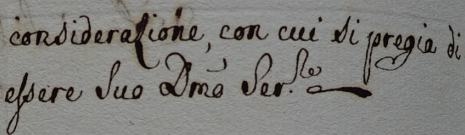 considerazione, con cui si pregia di
essere Suo Dmo Ser.le